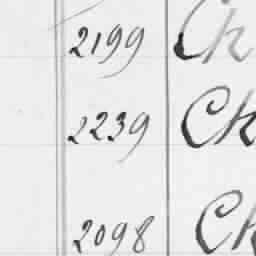 2199 Ch
2239 Ch
2098 Ch